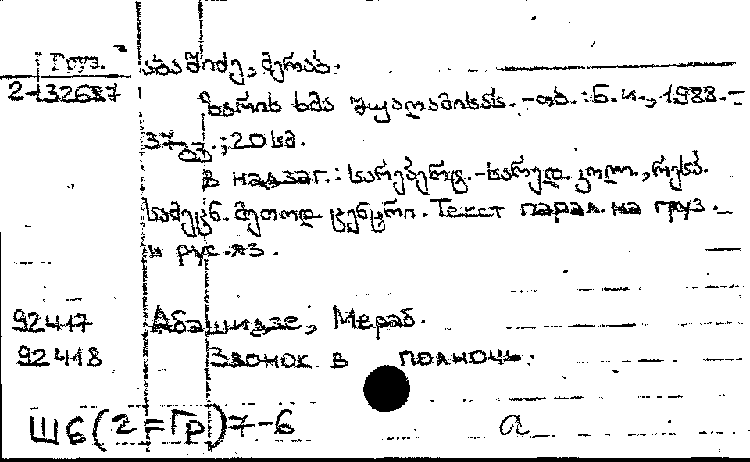 Груз. აბაშიძე, მერაბ.
2-132687 ზარის ხმა შუაღამისას. -თბ. : ნ. ი., 1988. -
37 გვ. ; 20 სმ.
В надзаг. : სარეპერტ. -სარედ. კოლ., რესპ.
სამეცნ. მეთოდ ცენტრი. Текст парал. на груз.
и рус. яз.
92417 Абашидзе, Мераб.
92418 Звонок в полночь.
Ш6(2=Гр)7-6 а